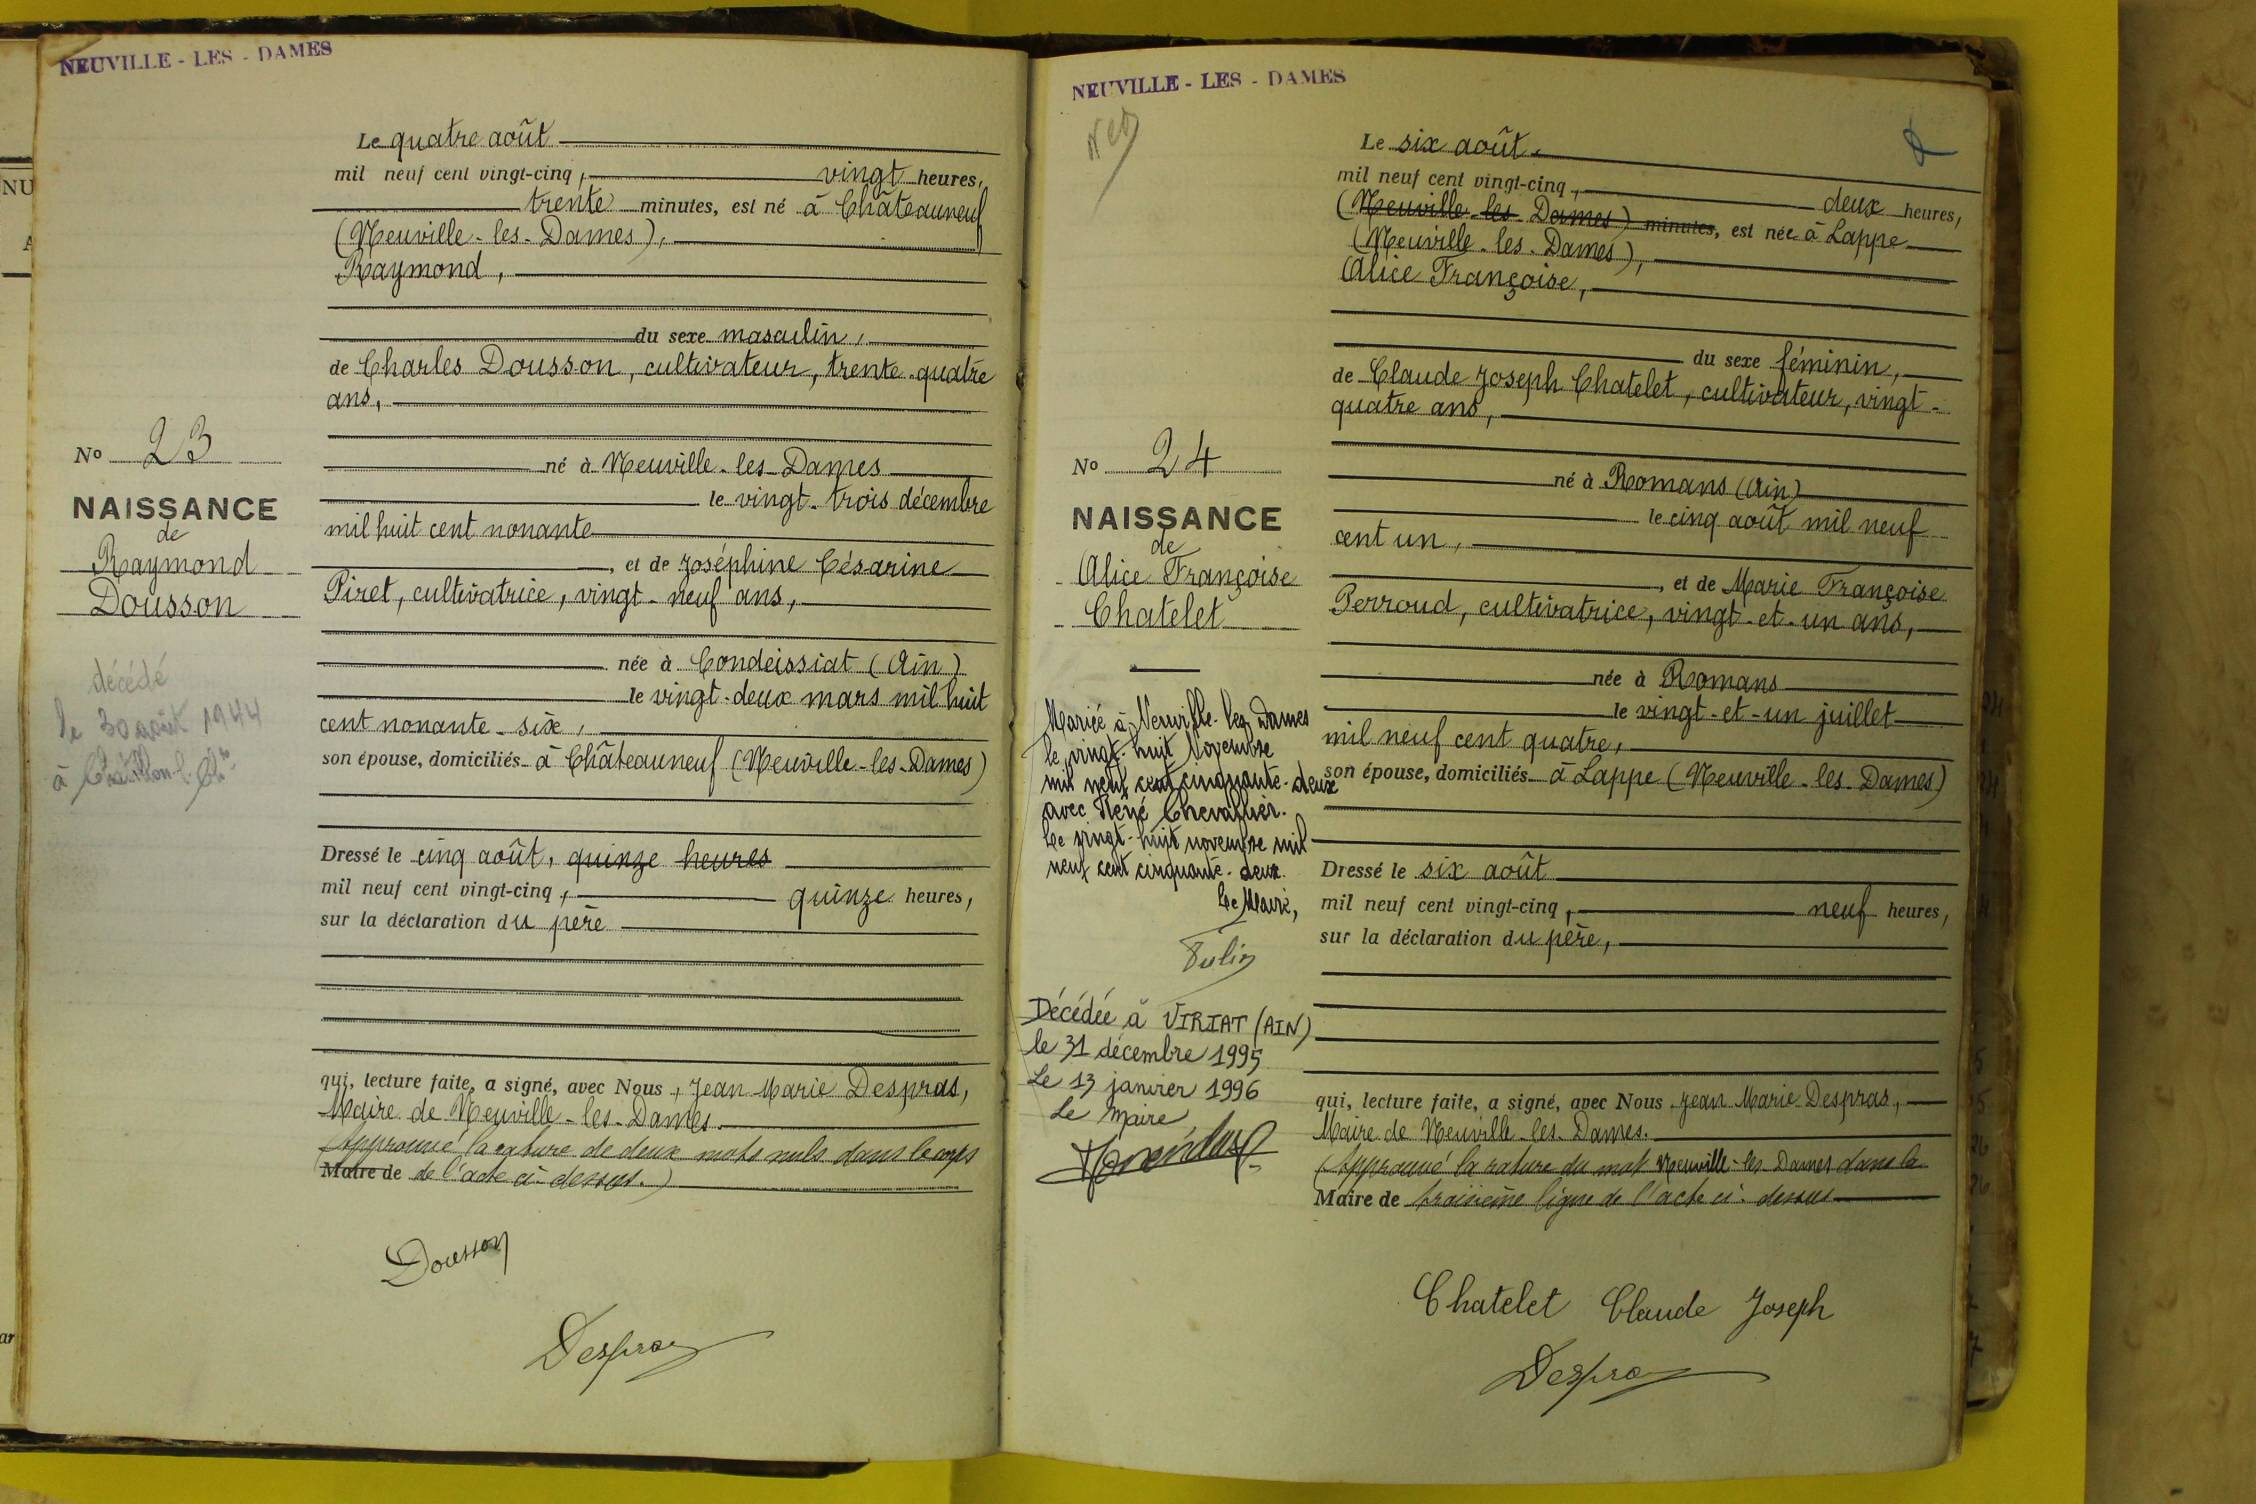 NEUVILLE - LES - DAMES
Le quatre août
mil neuf cent vingt-cinq, vingt heures,
trente minutes, est né à Châteauneuf
(Neuville-les-Dames),
Raymond,
du sexe masculin,
de Charles Dousson, cultivateur, trente-quatre
ans,
né à Neuville-les-Dames
le vingt-trois décembre
mil huit cent nonante
, et de Joséphine Césarine
Piret, cultivatrice, vingt-neuf ans,
née à Condeissiat (Ain)
le vingt-deux mars mil huit
cent nonante-six,
son épouse, domiciliés à Châteauneuf (Neuville-les-Dames)
Dressé le cinq août, quinze heures
mil neuf cent vingt-cinq, quinze heures,
sur la déclaration du père
qui, lecture faite, a signé, avec Nous, Jean Marie Despras,
Maire de Neuville-les-Dames.
(Approuvé la rature de deux mots nuls dans le corps
Maire de de l'acte ci-dessus.)
Dousson
Despras
No 23
NAISSANCE
de
Raymond
Dousson
décédé
le 30 août 1944
à Châtillon-s-Ch
NEUVILLE - LES - DAMES
Le six août,
mil neuf cent vingt-cinq, deux heures,
(Neuville-les-Dames) minutes, est née à Lappe
(Neuville-les-Dames),
Alice Françoise,
du sexe féminin,
de Claude Joseph Chatelet, cultivateur, vingt-
quatre ans,
né à Romans (Ain)
le cinq août mil neuf
cent un,
, et de Marie Françoise
Perroud, cultivatrice, vingt-et-un ans,
née à Romans
le vingt-et-un juillet
mil neuf cent quatre,
son épouse, domiciliés à Lappe (Neuville-les-Dames)
Dressé le six août
mil neuf cent vingt-cinq, neuf heures,
sur la déclaration du père,
qui, lecture faite, a signé, avec Nous Jean Marie Despras,
Maire de Neuville-les-Dames.
(Approuvé la rature du mot Neuville-les-Dames dans la
Maire de troisième ligne de l'acte ci-dessus
Chatelet Claude Joseph
Despras
No 24
NAISSANCE
de
Alice Françoise
Chatelet
Mariée à Neuville-les-Dames
le vingt-huit Novembre
mil neuf cent cinquante-deux
avec René Chevallier.
Le vingt-huit novembre mil
neuf cent cinquante-deux.
Le Maire,
Décédée à VIRIAT (AIN)
le 31 décembre 1995
Le 13 janvier 1996
Le Maire